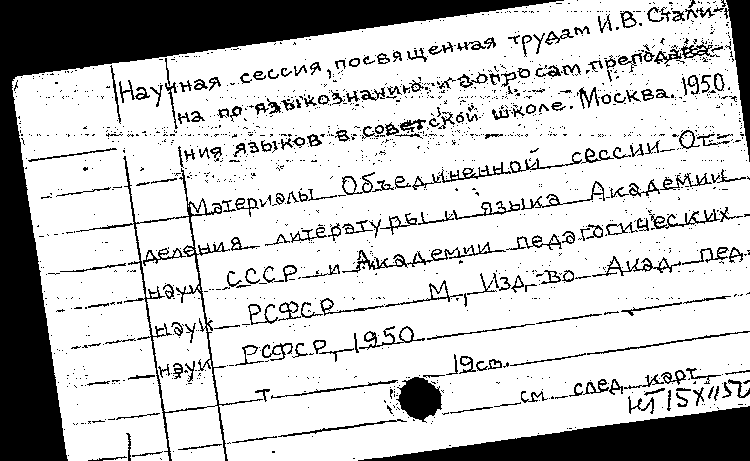 Научная сессия, посвященная трудам И.В. Стали-
на по языкознанию и вопросам преподава-
ния языков в советской школе. Москва. 1950.
Материалы Объединенной сессии От-
деления литературы и языка Академии
наук СССР и Академии педагогических
наук РСФСР М., Изд-во Акад. пед.
наук РСФСР, 1950
т. 19 см.
см. след. карт.
КП 15X1150